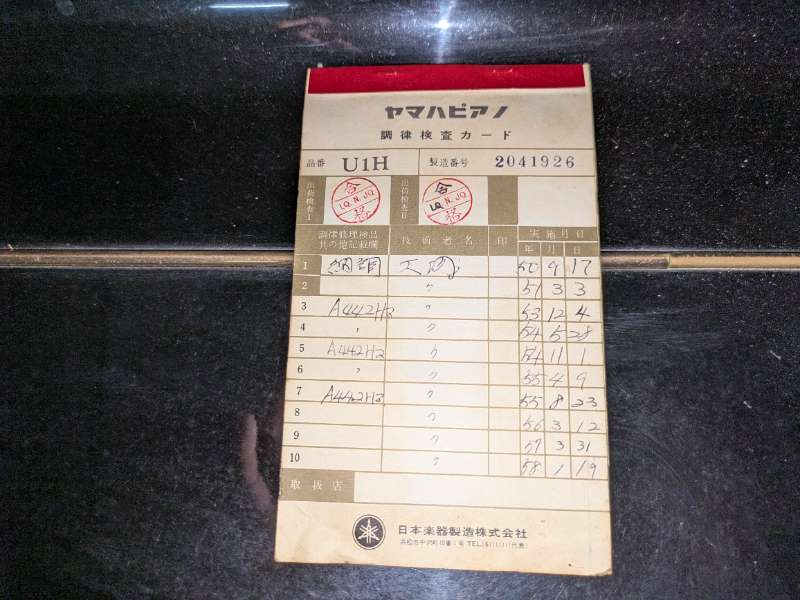 ヤマハピアノ
調律検査カード
品番 U1H 製造番号 2041926
出荷検査I 合 I.Q.N.JQ 格 出荷検査II 合 I.Q.N.JQ 格
調律修理検品其の他記載欄 技術者名 印 実施月日 年 月 日
1 納調 50 9 17
2 〃 51 3 3
3 A442Hz 〃 53 12 4
4 〃 〃 54 5 28
5 A442Hz 〃 54 11 1
6 〃 〃 55 4 9
7 A442Hz 〃 55 8 23
8 〃 56 3 12
9 〃 57 3 31
10 〃 58 1 19
取扱店
日本楽器製造株式会社
浜松市中沢町10番1号 TEL(61)1111(代表)